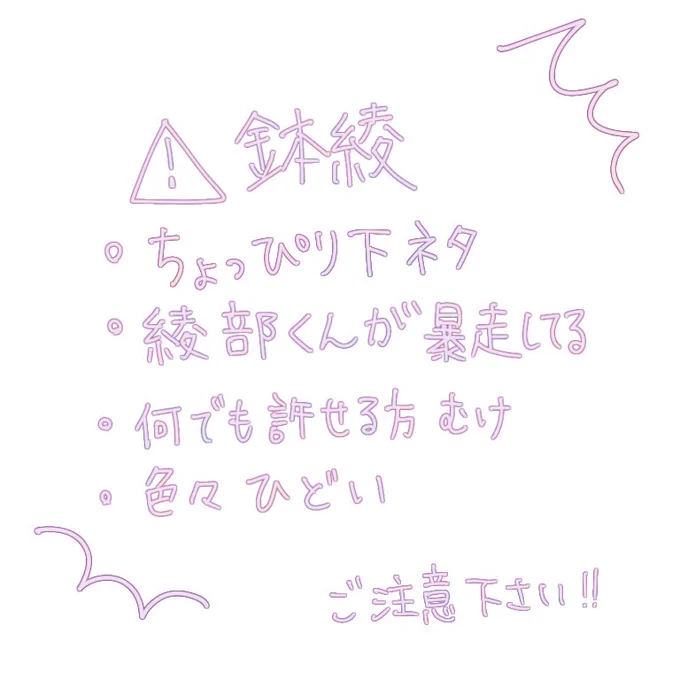 ⚠ 鉢綾
○ ちょっぴり下ネタ
○ 綾部くんが暴走してる
○ 何でも許せる方むけ
○ 色々ひどい
ご注意下さい!!